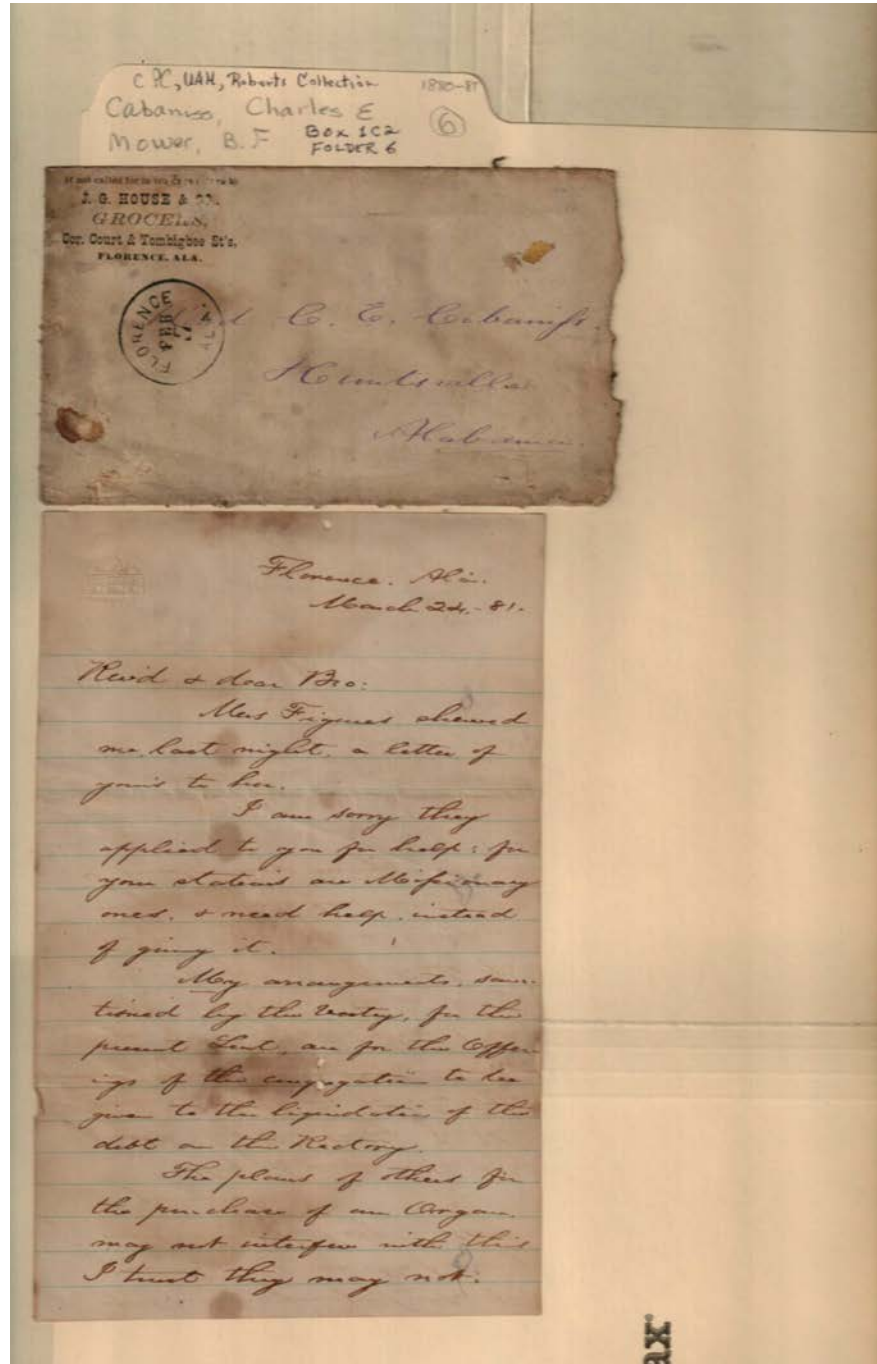 C PC, UAH, Roberts Collection 1880-81
Cabaniss, Charles E
Mower, B. F
BOX 1C2
FOLDER 6
6
If not called for in
J. G. HOUSE & CO.
GROCERS,
Cor. Court & Tombigbee St's,
FLORENCE, ALA.
FLORENCE ALA.
FEB
C. E. Cabaniss.
Huntsville
Alabama.
Florence. Ala.
March 24.-81.
Rev'd & dear Bro:
Mrs Figures shewed
me, last night, a letter of
your's to her.
I am sorry they
applied to you for help: for
your station's are Missionary
ones, & need help, instead
of giving it.
My arrangements, sanc-
tioned by the Vestry, for the
present Lent, are for the Offer-
ings of the congregation to be
given to the liquidation of the
debt on the Rectory.
The plans of others for
the purchase of an Organ
may not interfere with this
I trust they may not.
ax